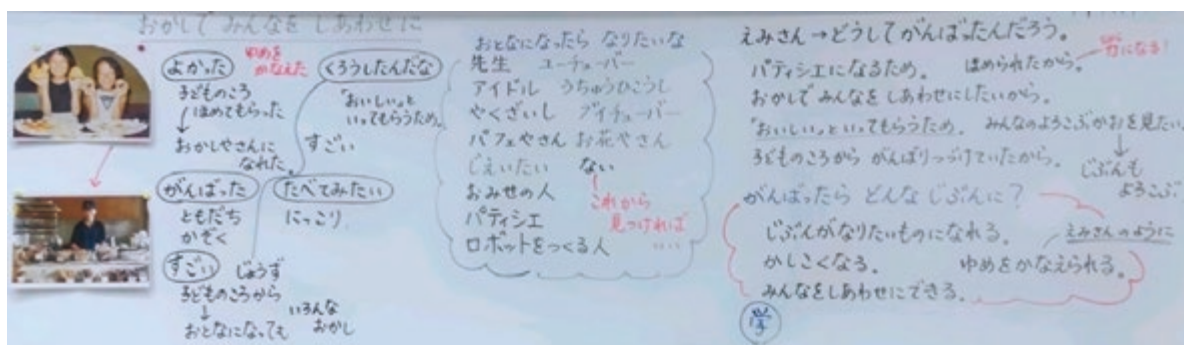 おかしで みんなを しあわせに
よかった
ゆめを
かなえた
子どものころ
ほめてもらった
↓
おかしやさんに
なれた。
くろうしたんだな
"おいしい"と
いってもらうため。
すごい
がんばった
ともだち
かぞく
たべてみたい
にっこり
すごい
じょうず
子どものころから
↓
おとなになっても
いろんな
おかし
おとなになったら なりたいな
先生 ユーチューバー
アイドル うちゅうひこうし
やくざいし ブイチューバー
パフェやさん お花やさん
じえいたい ない
おみせの人
パティシエ
ロボットをつくる人
これから
見つければ
‥‥
えみさん→どうしてがんばったんだろう。
パティシエになるため。 ほめられたから。
力になる!
おかしで みんなを しあわせにしたいから。
"おいしい"といってもらうため。 みんなのよろこぶかおを見たい。
子どものころから がんばりつづけていたから。
↓
じぶんも
よろこぶ
がんばったら どんな じぶんに?
じぶんがなりたいものになれる。
えみさんのように
かしこくなる。 ゆめをかなえられる。
みんなをしあわせにできる。
学